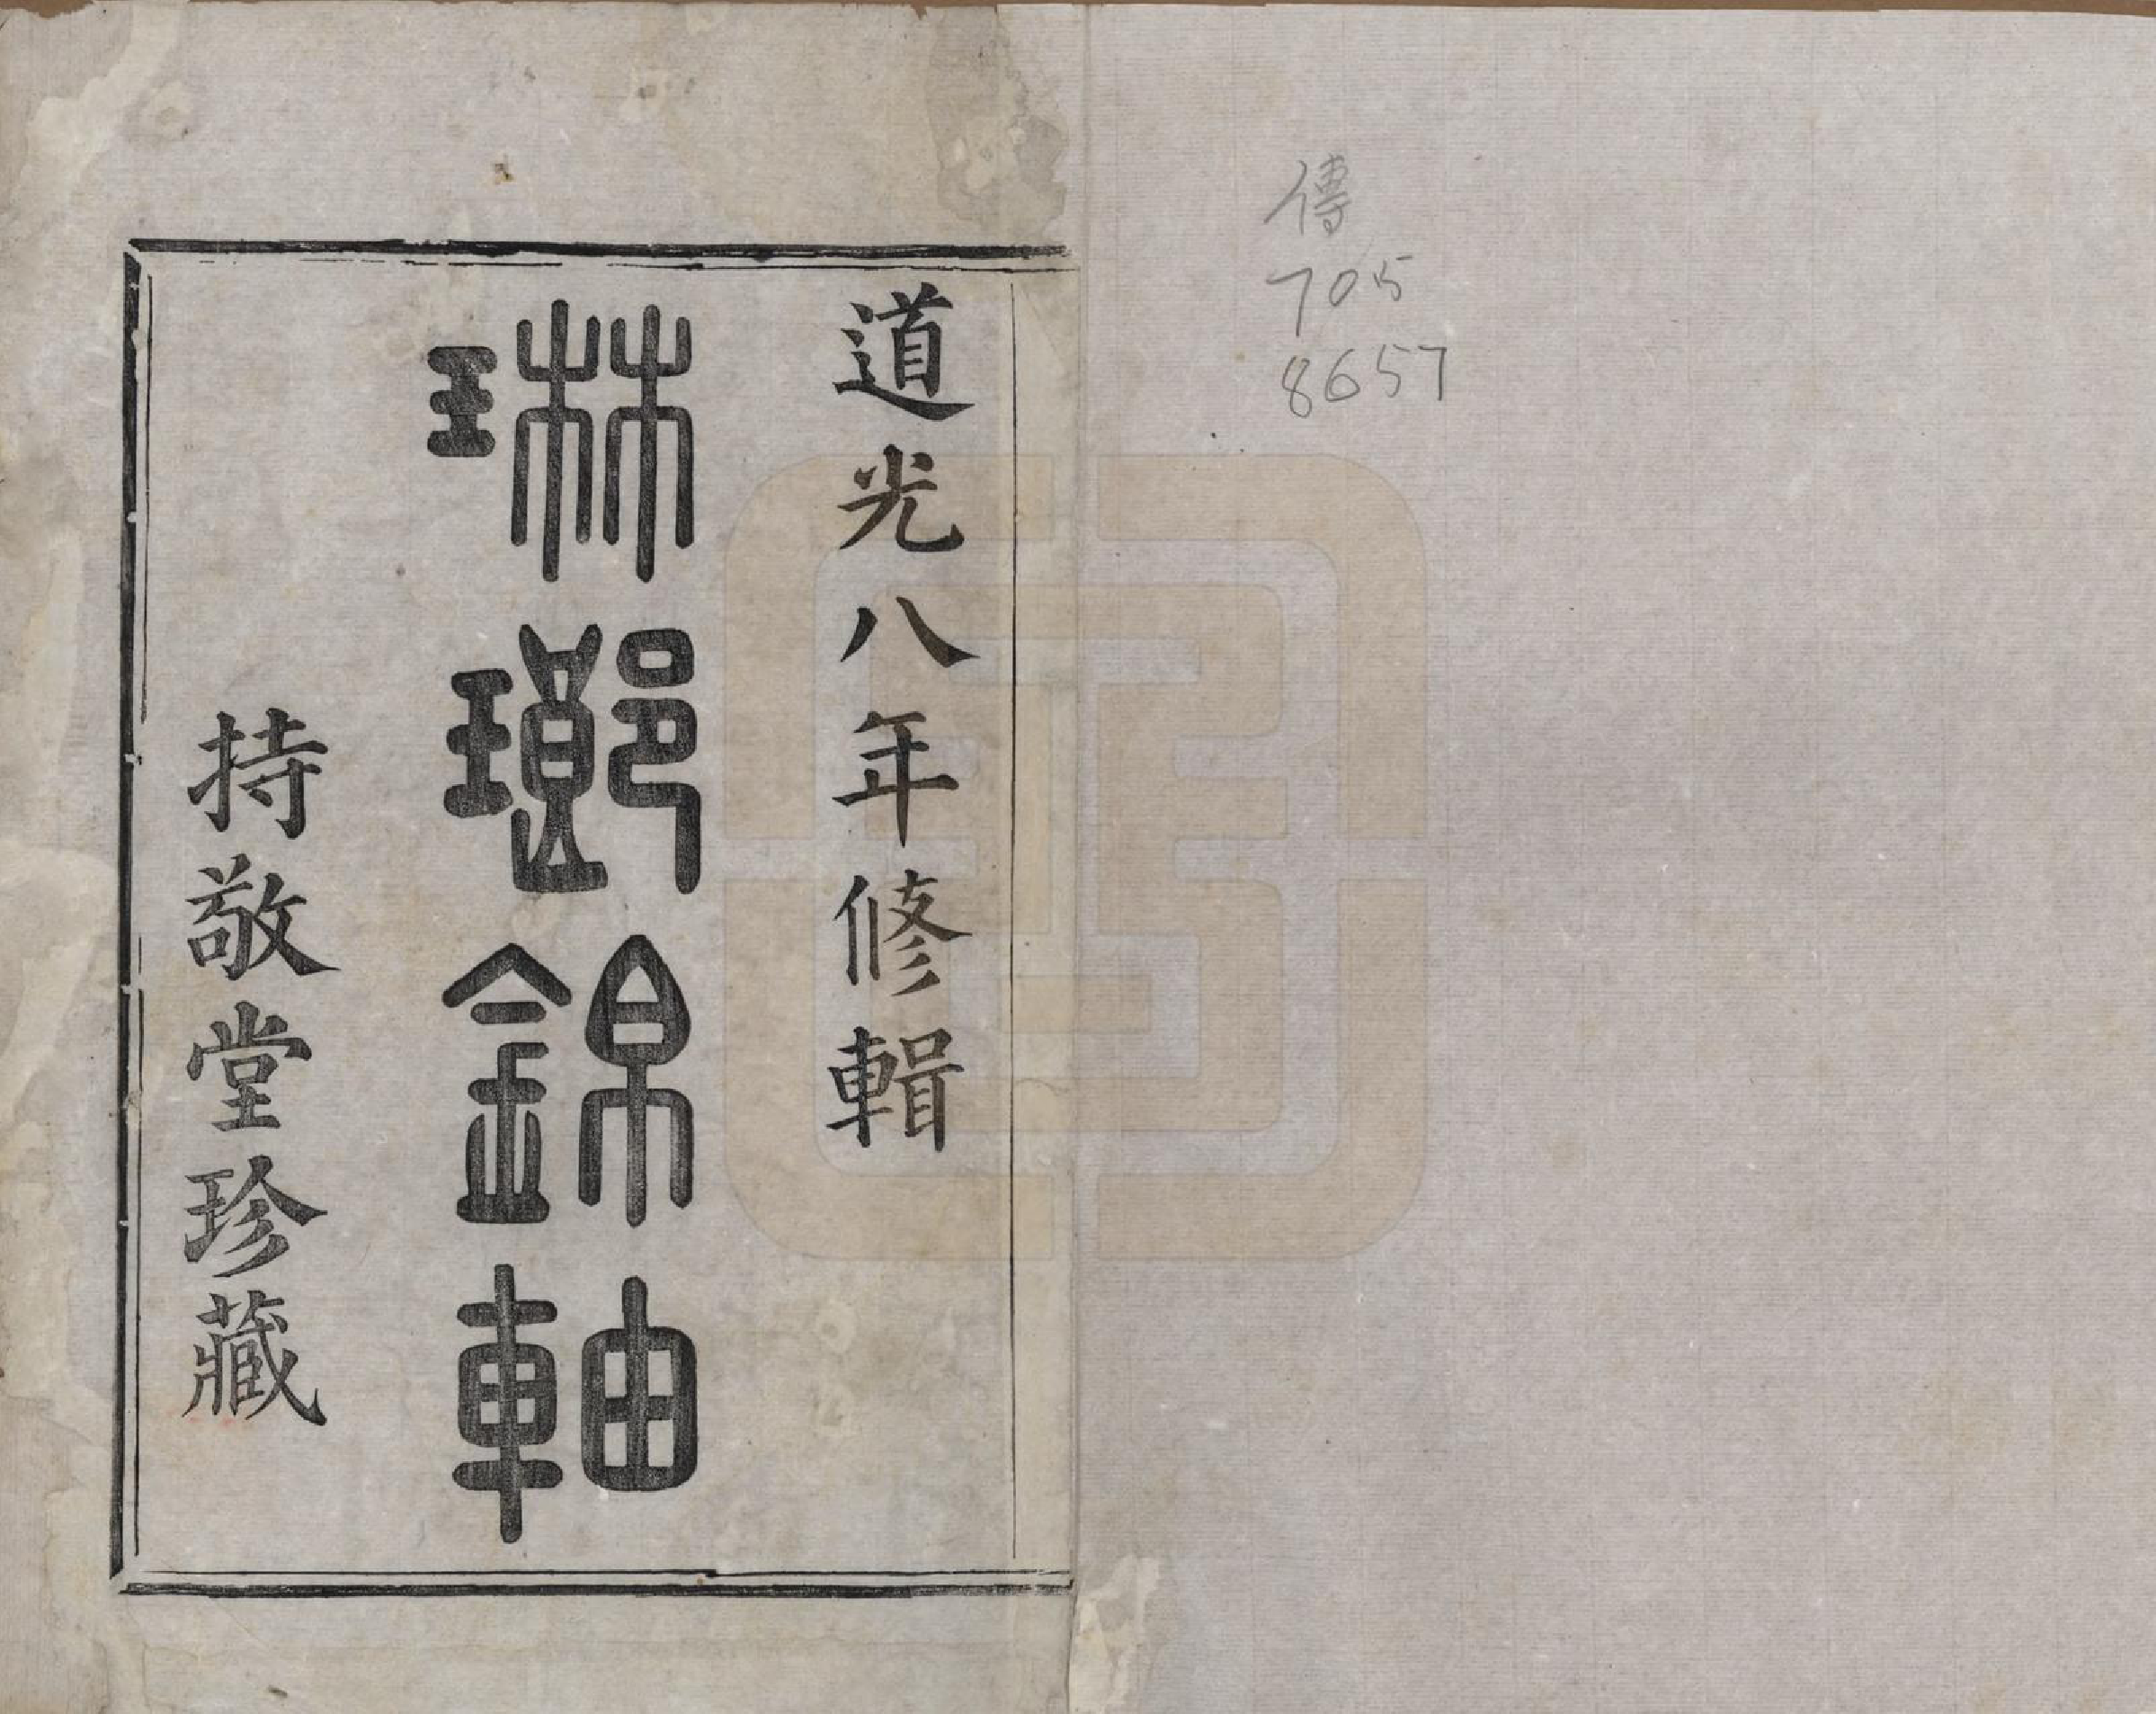 傳
705
8657
道光八年修輯
琳瑯錦軸
持敬堂珍藏